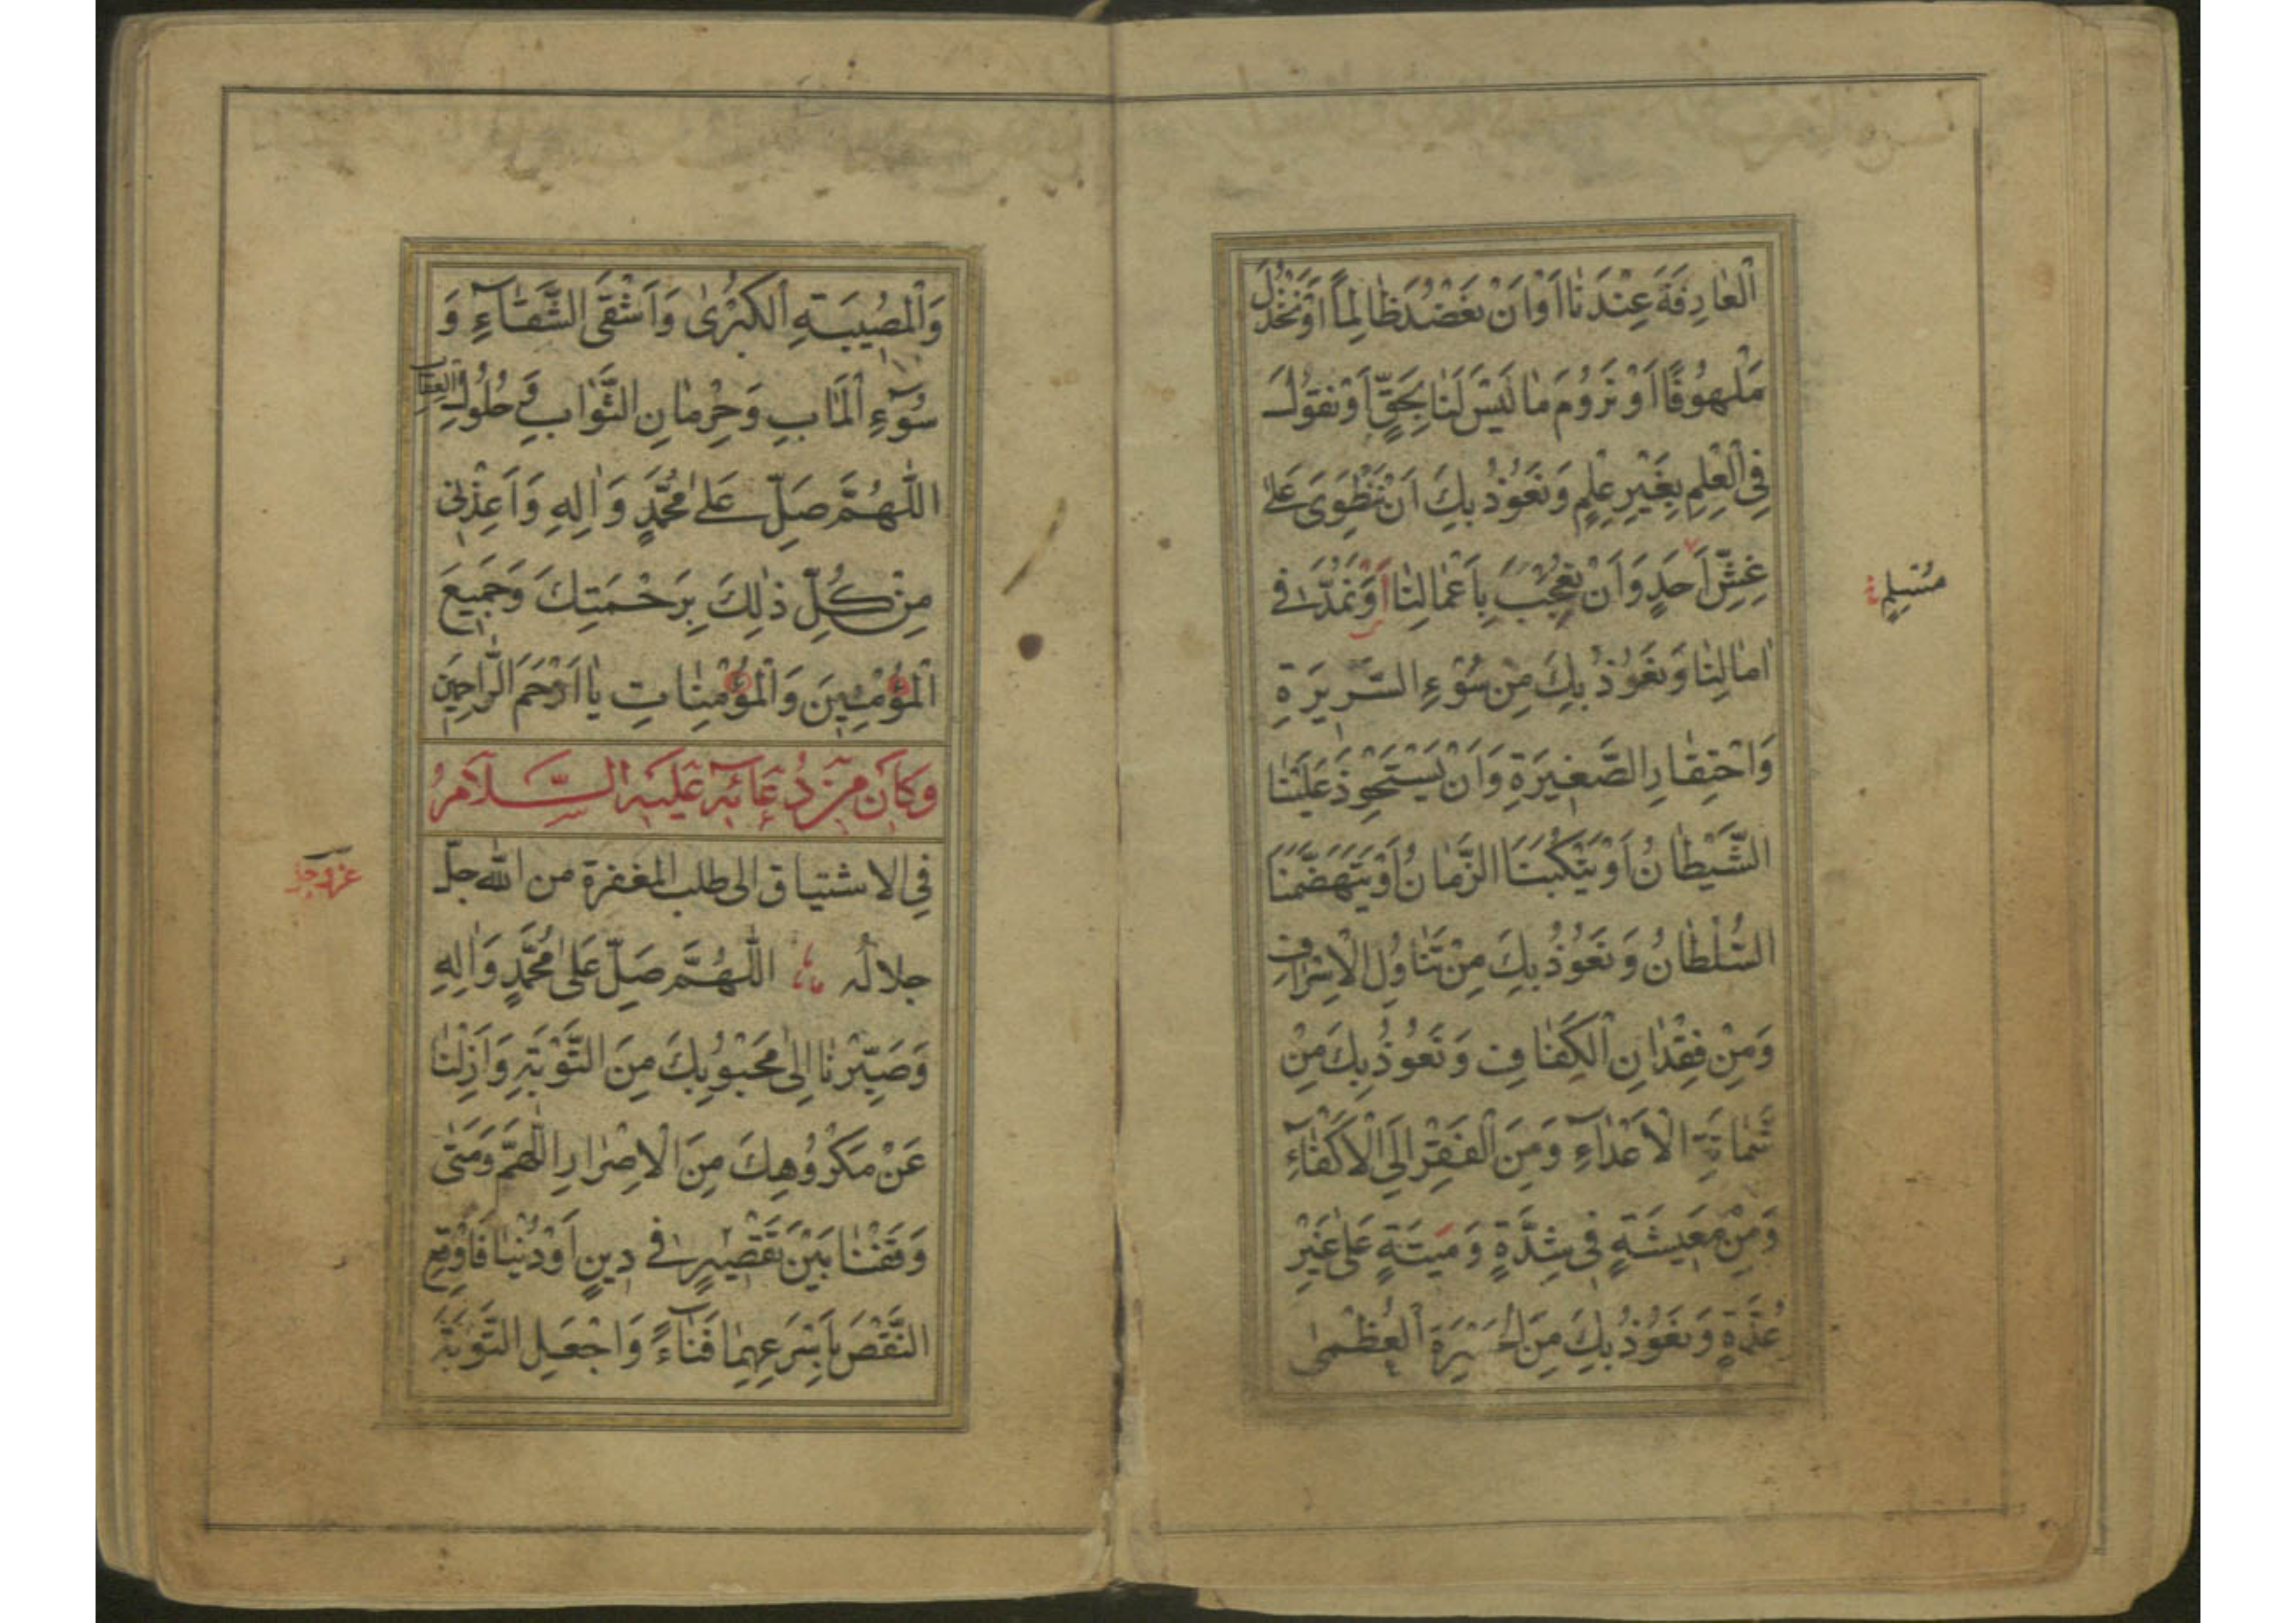 اَلْعَارِفَةَ عِنْدَنَا اَوْ اَنْ نَعْضُدَ ظَالِمًا اَوْ نَخْذُلَ
مَلْهُوفًا اَوْ نَرُومَ مَا لَيْسَ لَنَا بِحَقٍّ اَوْ نَقُولَ
فِي الْعِلْمِ بِغَيْرِ عِلْمٍ وَنَعُوذُ بِكَ اَنْ نَنْطَوِيَ عَلٰى
غِشِّ اَحَدٍ وَاَنْ نُعْجِبَ بِاَعْمَالِنَا اَوْ نَمُدَّ فِي
اٰمَالِنَا وَنَعُوذُ بِكَ مِنْ سُوْءِ السَّرِيرَةِ
وَاحْتِقَارِ الصَّغِيرَةِ وَاَنْ يَسْتَحْوِذَ عَلَيْنَا
الشَّيْطَانُ اَوْ يَنْكُبَنَا الزَّمَانُ اَوْ يَتَهَضَّمَنَا
السُّلْطَانُ وَنَعُوذُ بِكَ مِنْ تَنَاوُلِ الْاِسْرَافِ
وَمِنْ فِقْدَانِ الْكَفَافِ وَنَعُوذُ بِكَ مِنْ
شَمَاتَةِ الْاَعْدَآءِ وَمِنَ الْفَقْرِ اِلَى الْاَكْفَآءِ
وَمِنْ مَعِيشَةٍ فِي شِدَّةٍ وَمِيتَةٍ عَلٰى غَيْرِ
عُدَّةٍ وَنَعُوذُ بِكَ مِنَ الْحَسْرَةِ الْعُظْمٰى
وَالْمُصِيبَةِ الْكُبْرٰى وَاَشْقَى الشَّقَآءِ وَ
سُوْٓءِ الْمَاٰبِ وَحِرْمَانِ الثَّوَابِ وَحُلُولِ الْعِقَابِ
اَللّٰهُمَّ صَلِّ عَلٰى مُحَمَّدٍ وَاٰلِهِ وَاَعِذْنِي
مِنْ كُلِّ ذٰلِكَ بِرَحْمَتِكَ وَجَمِيعَ
الْمُؤْمِنِينَ وَالْمُؤْمِنَاتِ يَا اَرْحَمَ الرَّاحِمِينَ
وَكَانَ مِنْ دُعَائِهِ عَلَيْهِ السَّلَامُ
فِي الاشتياق الى طلب المغفرة من الله جلّ
عز وجل
جلالُه اَللّٰهُمَّ صَلِّ عَلٰى مُحَمَّدٍ وَاٰلِهِ
وَصَيِّرْنَا اِلٰى مَحْبُوبِكَ مِنَ التَّوْبَةِ وَاَزِلْنَا
عَنْ مَكْرُوهِكَ مِنَ الْاِصْرَارِ اَللّٰهُمَّ وَمَتٰى
وَقَفْنَا بَيْنَ نَقْصَيْنِ فِي دِينٍ اَوْ دُنْيَا فَاَوْقِعِ
النَّقْصَ بِاَسْرَعِهِمَا فَنَاءً وَاجْعَلِ التَّوْبَةَ